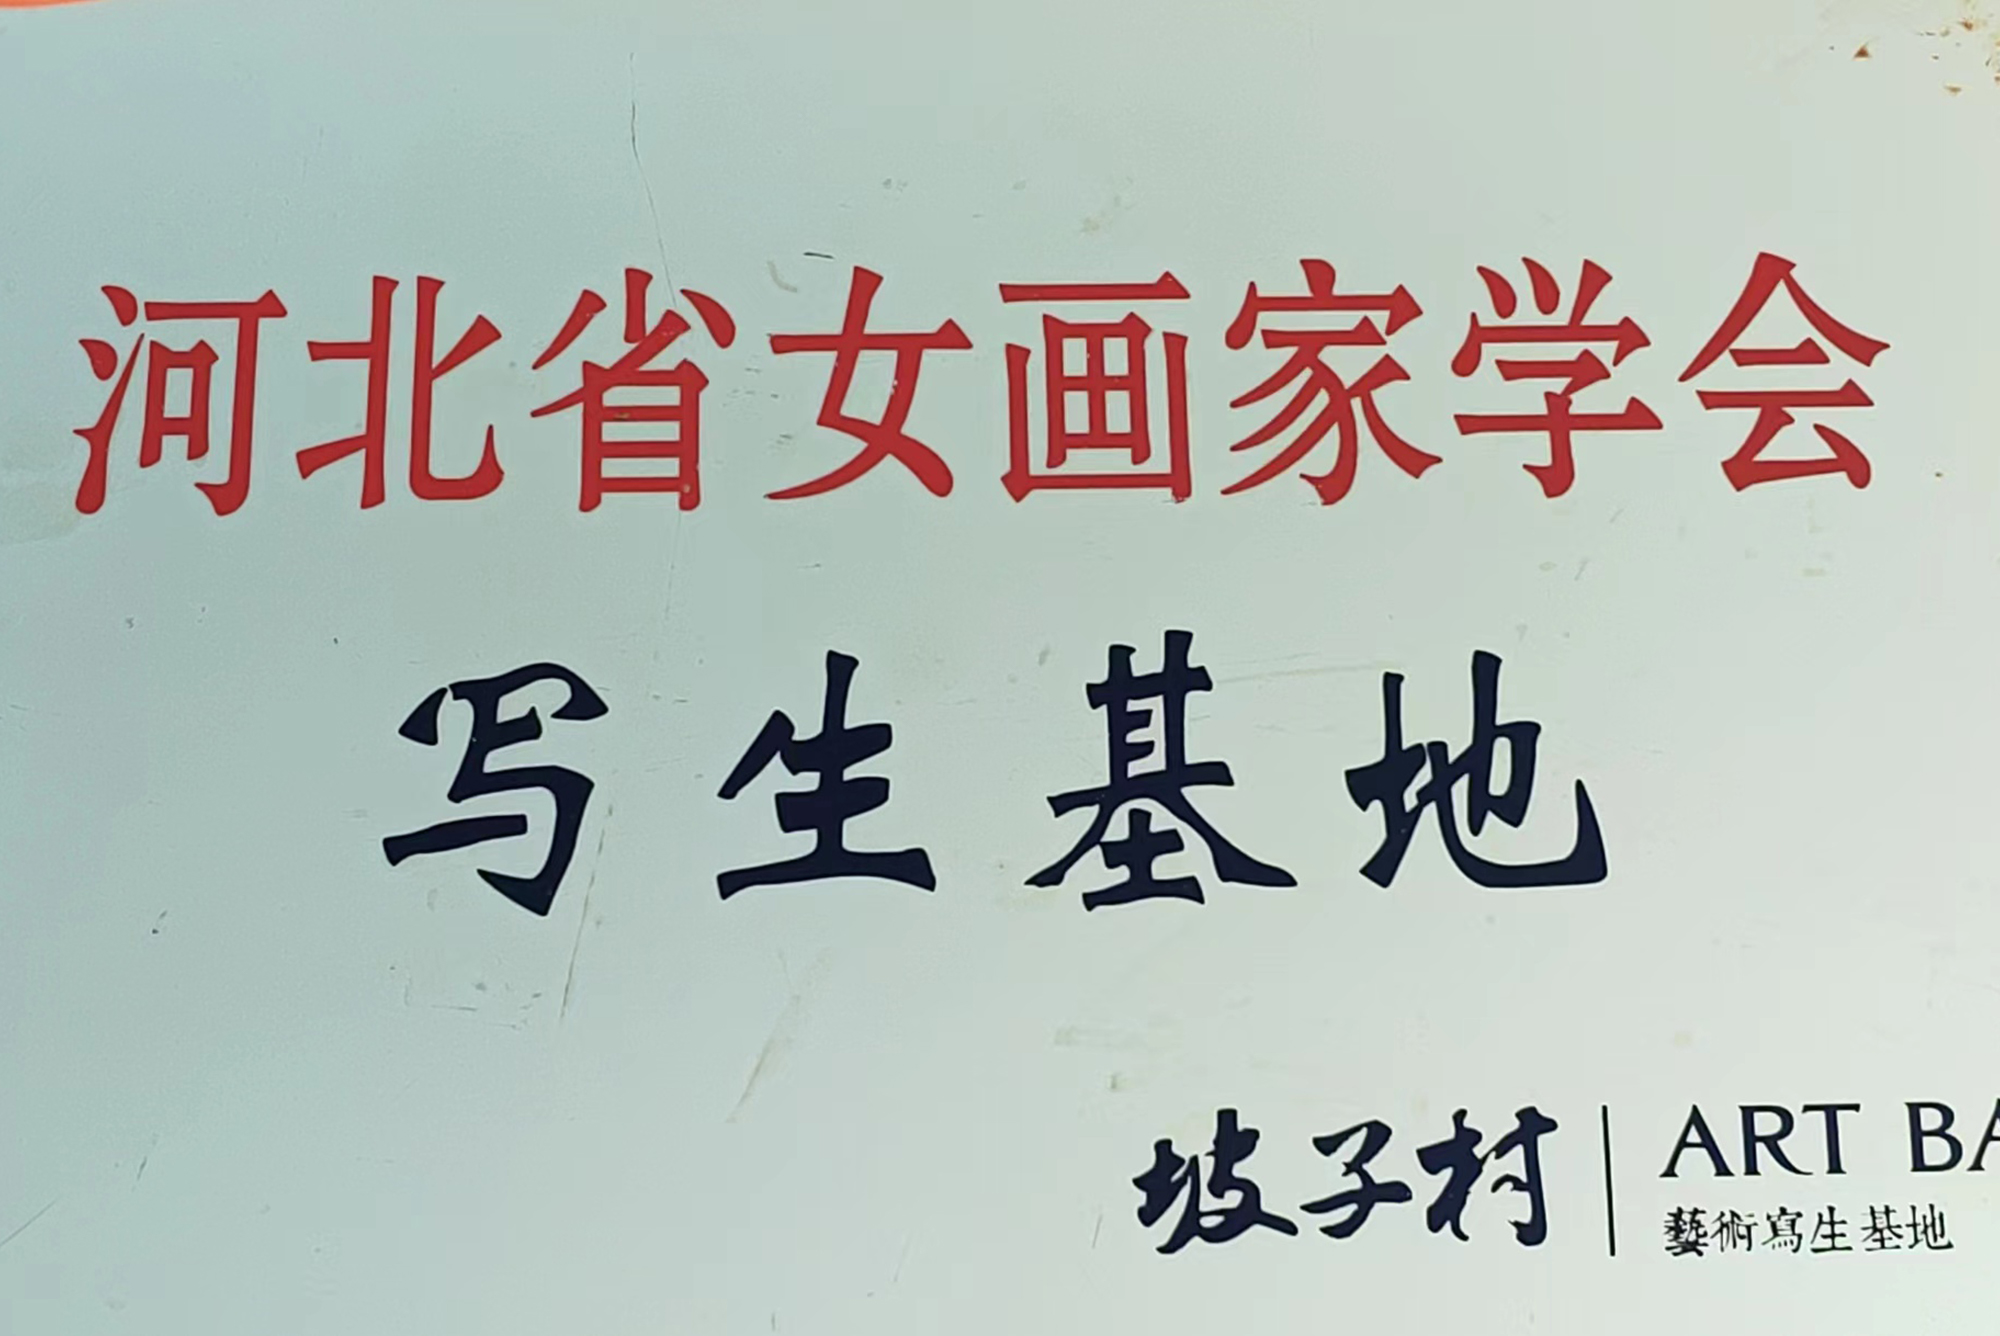 河北省女画家学会
写生基地
坡子村
ART BA
藝術寫生基地